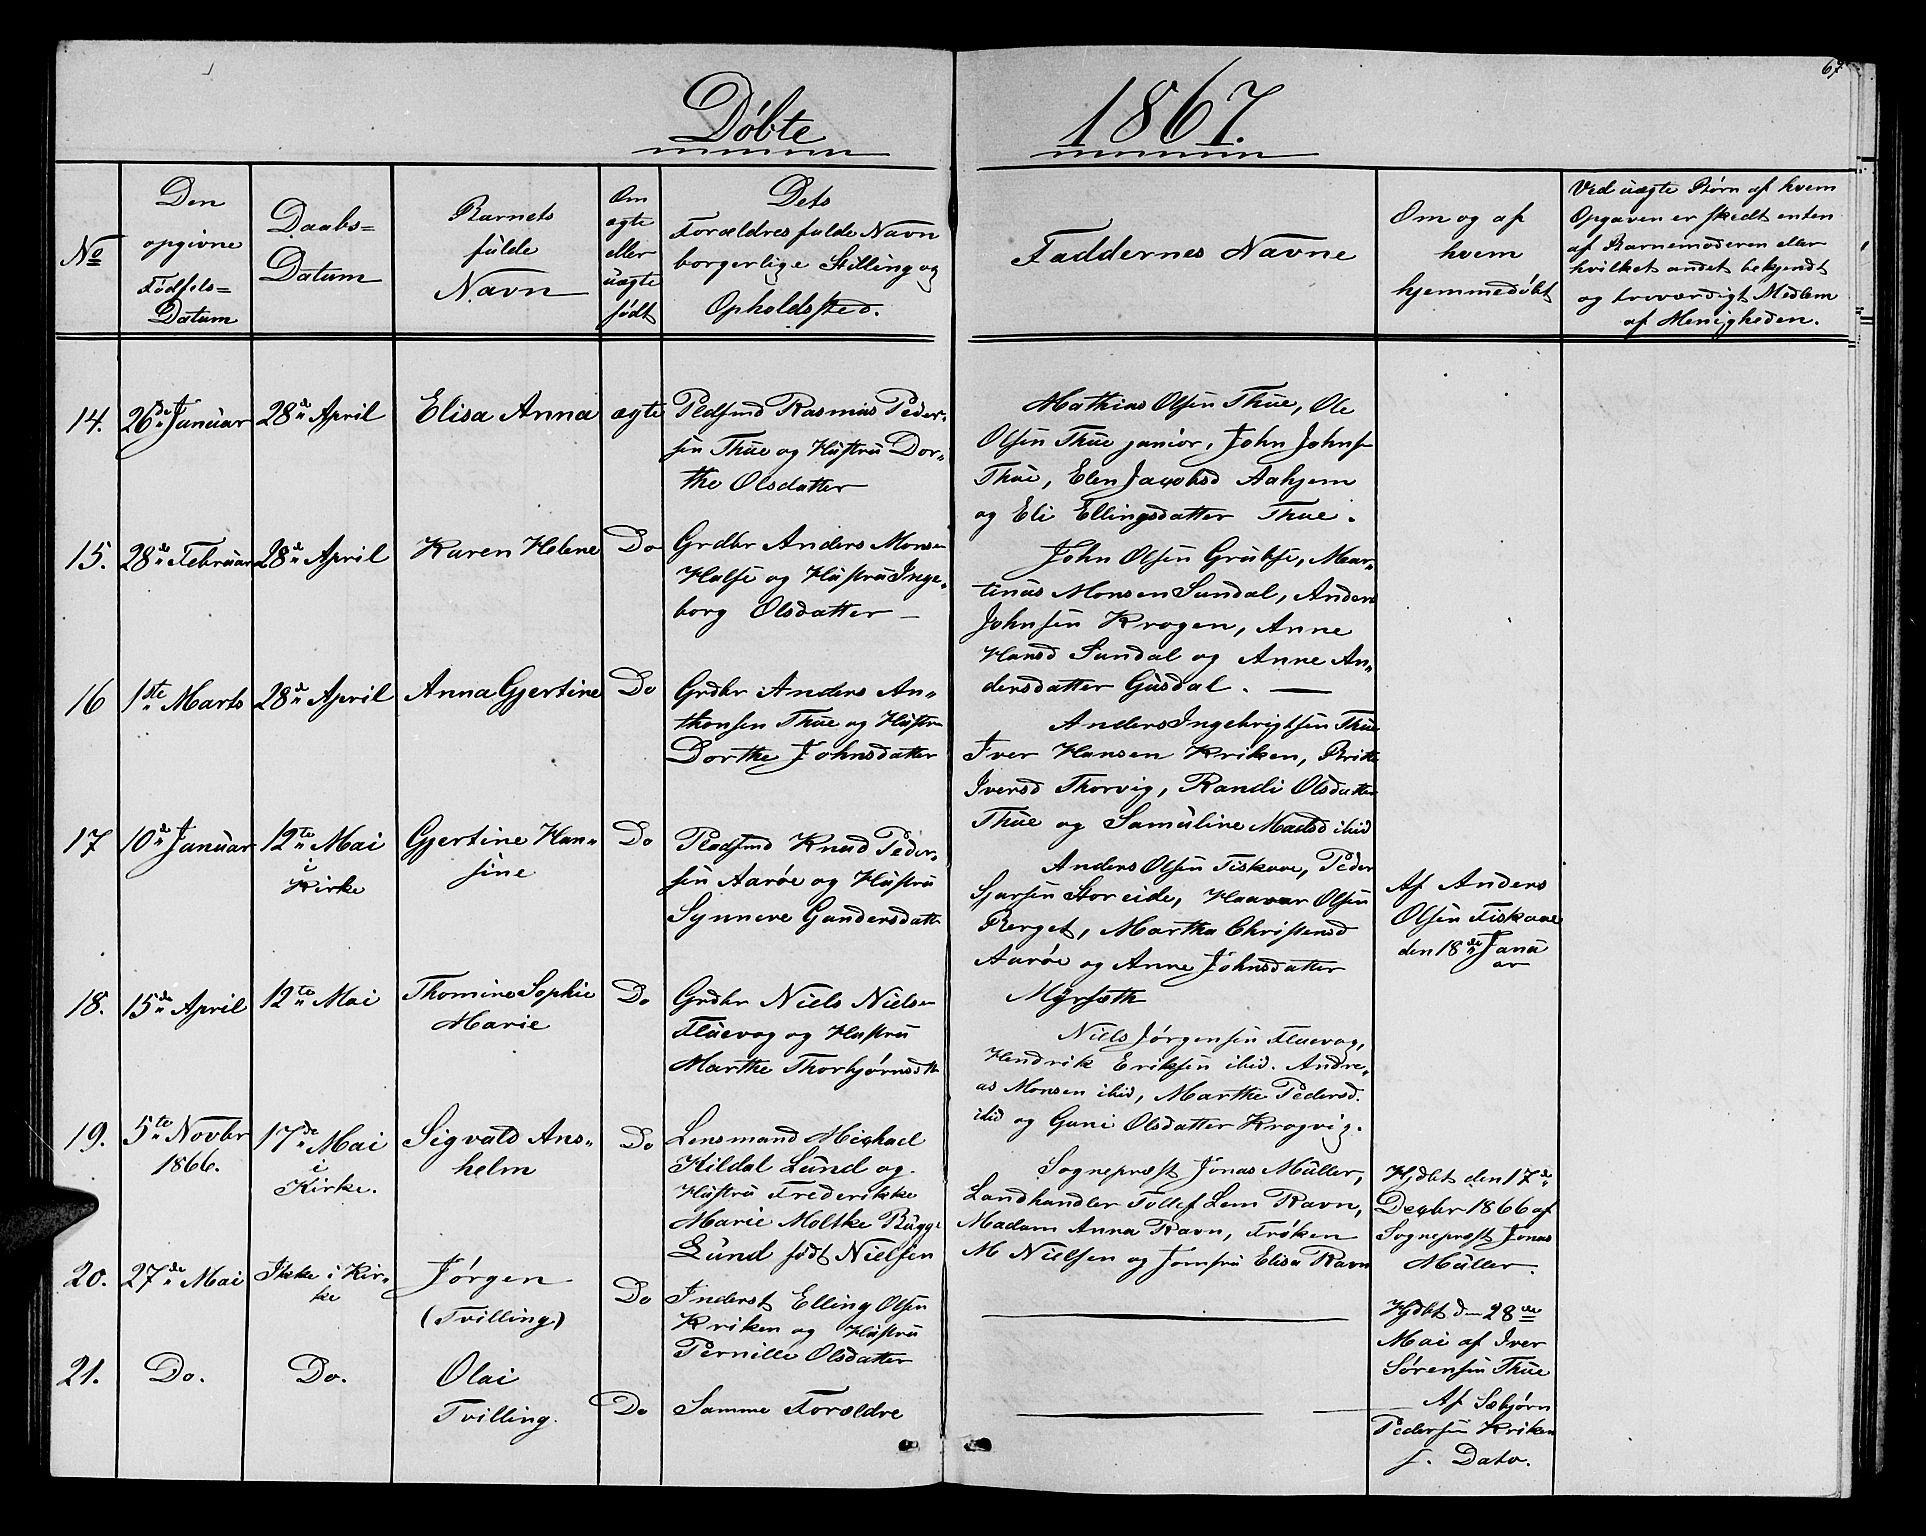 67
Döbte
1867.
No
Den
opgivne
Födsels=
Datum
Daabs=
Datum
Barnets
fulde
Navn
Om
ægte
eller
uægte
født
Dets
Forældres fulde Navn
borgerlige Stilling og
Opholdssted.
Faddernes Navne
Om og af
hvem
hjemmedöbt
Ved uægte Börn af hvem
Opgaven er skedt enten
af Barnemoderen eller
hvilket andet bekjendt
og troværdigt Medlem
af Menigheden.
14.
26de Januar
28de April
Elisa Anna
ægte
Pldsmd Rasmus Peder-
sen Thue og Hustru Dor-
the Olsdatter
Mathias Olsen Thue, Ole
Olsen Thue junior, John Johns
Thue, Elen Jacobsd Aahjem
og Eli Ellingsdatter Thue.
15.
28de Februar
28de April
Karen Helene
Do
Grdbr Anders Monsen
Halse og Hustru Inge-
borg Olsdatter
John Olsen Grubse, Mar-
tinus Monsen Sundal, Anders
Johnsen Krogen, Anne
Hansd Sundal og Anne An-
dersdatter Gusdal.
16
1ste Marts
28de April
Anna Gjertine
Do
Grdbr Anders An-
thonsen Thue og Hustru
Dorthe Johnsdatter
Anders Ingebrigtsen Thue
Iver Hansen Kriken, Britte
Iversd Thorvig, Randi Olsdatter
Thue og Samuline Madsd ibid
17
10de Januar
12te Mai
i
Kirke
Gjertine Han-
sine
Do
Pladsmd Knud Peder-
sen Aaröe og Hustru
Synneve Gundersdatt
Anders Olsen Fiskaae, Peder
Sjursen Storeide, Haavar Olsen
Berget, Martha Christensd
Aaröe og Anne Johnsdatter
Myrsæth
Af Anders
Olsen Fiskaae
den 18de Janu
ar
18.
15de April
12te Mai
Thomine Sophie
Marie
Do
Grdbr Niels Nielsen
Fluevog og Hustru
Marthe Thorbjörnsdtt
Niels Jörgensen Fluevog,
Hendrik Eriksen ibid. Andre-
as Monsen ibid, Marthe Pedersd.
ibid og Guni Olsdatter Krogvig.
19.
5te Novbr
1866.
17de Mai
i
Kirke.
Sigvald Ans-
helm
Do
Lensmand Michael
Kildal Lund og
Hustru Frederikke
Marie Moltke Bugge
Lund födt Nielsen
Sognepræst Jonas Müller,
Landhandler Tollef Lem Ravn,
Madam Anna Ravn, Fröken
M Nielsen og Jomfru Elisa Ravn
Hjdbt den 17de
Decbr 1866 af
Sogneprst Jonas
Müller.
20.
27de Mai
Ikke i Kir-
ke
Jörgen
(Tvilling)
Do
Inderst Elling Olsen
Kriken og Hustru
Pernille Olsdatter
Hjdbt d 28de
Mai af Iver
Sörensen Thue
21.
Do.
Do.
Olai
Tvilling.
Do
Samme Forældre
Af Sæbjörn
Pedersen Kriken
s. Dato.